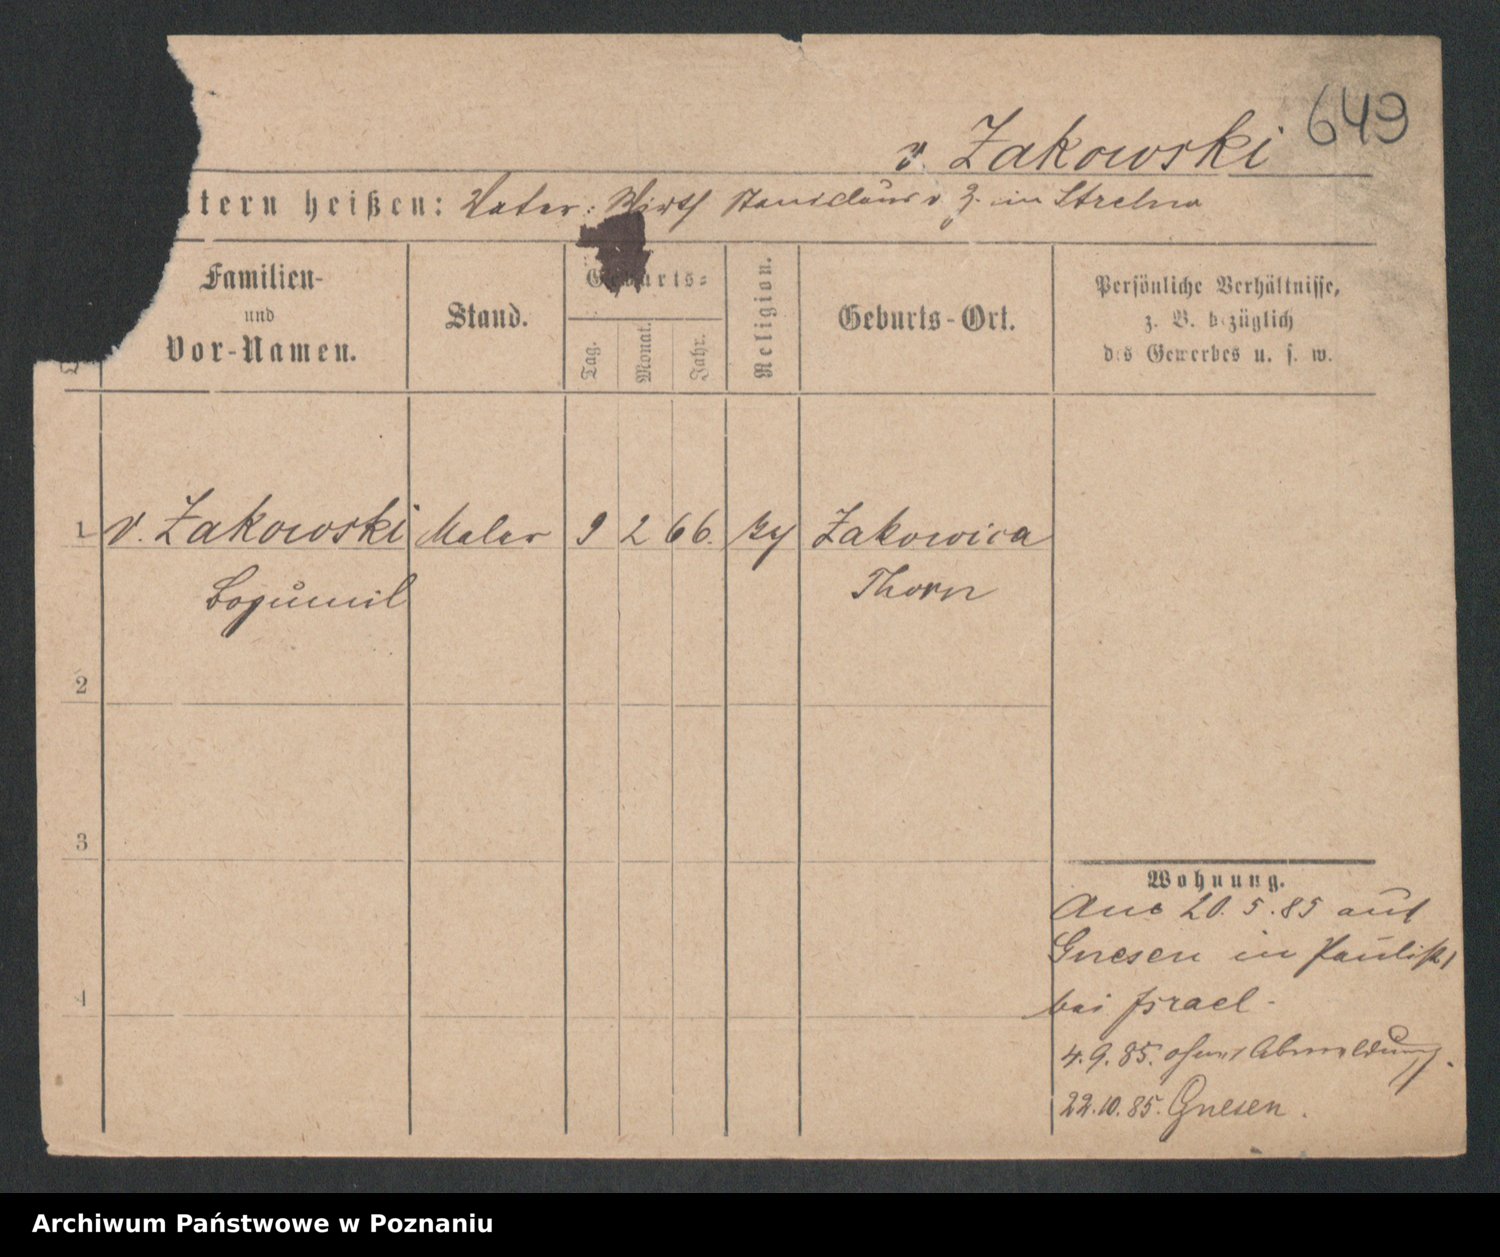 649
v. Zakowski
tern heißen: Vater: Wirth Stanislaus v Z. in Strelno
Familien-
und
Vor-Namen.
Stand.
Geburts=
Tag.
Monat.
Jahr.
Religion.
Geburts-Ort.
Persönliche Verhältnisse,
z. B. bezüglich
des Gewerbes u. s. w.
1 v. Zakowski Maler 9 2 66. Zakowica
Bogumil Thorn
2
3
4
Wohnung.
20. 5. 85 aus
Gnesen in
bei Israel
4. 9. 85. ohne Abmeldung.
22. 10. 85. Gnesen.
Archiwum Państwowe w Poznaniu